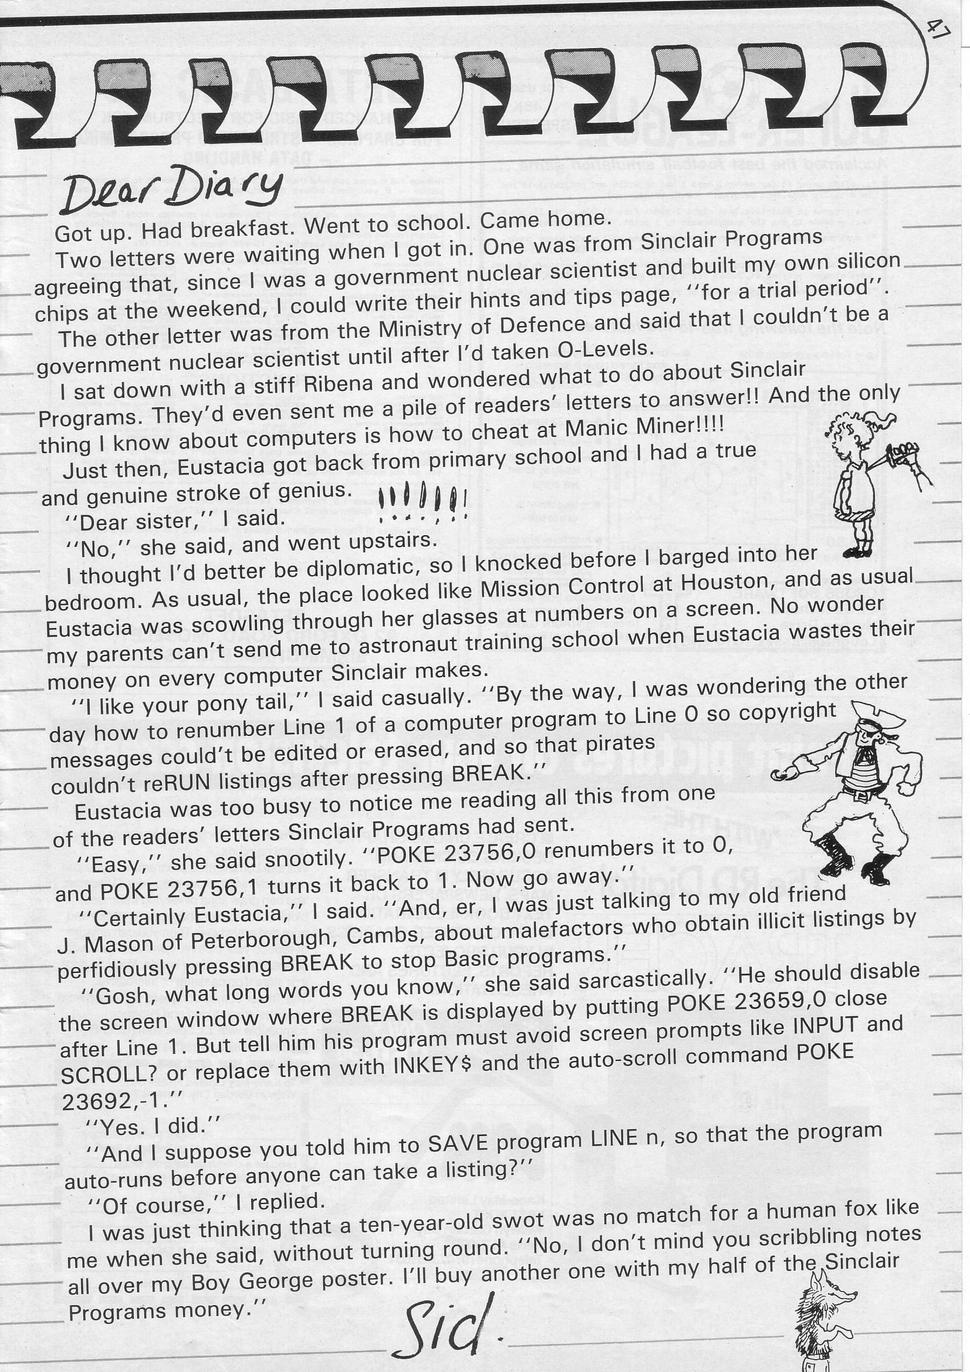 47
Dear Diary
Got up. Had breakfast. Went to school. Came home.
Two letters were waiting when I got in. One was from Sinclair Programs
agreeing that, since I was a government nuclear scientist and built my own silicon
chips at the weekend, I could write their hints and tips page, ‘‘for a trial period’’.
The other letter was from the Ministry of Defence and said that I couldn’t be a
government nuclear scientist until after I’d taken O-Levels.
I sat down with a stiff Ribena and wondered what to do about Sinclair
Programs. They’d even sent me a pile of readers’ letters to answer!! And the only
thing I know about computers is how to cheat at Manic Miner!!!!
Just then, Eustacia got back from primary school and I had a true
and genuine stroke of genius. !!!!!!!
‘‘Dear sister,’’ I said.
‘‘No,’’ she said, and went upstairs.
I thought I’d better be diplomatic, so I knocked before I barged into her
bedroom. As usual, the place looked like Mission Control at Houston, and as usual
Eustacia was scowling through her glasses at numbers on a screen. No wonder
my parents can’t send me to astronaut training school when Eustacia wastes their
money on every computer Sinclair makes.
‘‘I like your pony tail,’’ I said casually. ‘‘By the way, I was wondering the other
day how to renumber Line 1 of a computer program to Line 0 so copyright
messages couldn’t be edited or erased, and so that pirates
couldn’t reRUN listings after pressing BREAK.’’
Eustacia was too busy to notice me reading all this from one
of the readers’ letters Sinclair Programs had sent.
‘‘Easy,’’ she said snootily. ‘‘POKE 23756,0 renumbers it to 0,
and POKE 23756,1 turns it back to 1. Now go away.’’
‘‘Certainly Eustacia,’’ I said. ‘‘And, er, I was just talking to my old friend
J. Mason of Peterborough, Cambs, about malefactors who obtain illicit listings by
perfidiously pressing BREAK to stop Basic programs.’’
‘‘Gosh, what long words you know,’’ she said sarcastically. ‘‘He should disable
the screen window where BREAK is displayed by putting POKE 23659,0 close
after Line 1. But tell him his program must avoid screen prompts like INPUT and
SCROLL? or replace them with INKEY$ and the auto-scroll command POKE
23692,-1.’’
‘‘Yes. I did.’’
‘‘And I suppose you told him to SAVE program LINE n, so that the program
auto-runs before anyone can take a listing?’’
‘‘Of course,’’ I replied.
I was just thinking that a ten-year-old swot was no match for a human fox like
me when she said, without turning round. ‘‘No, I don’t mind you scribbling notes
all over my Boy George poster. I’ll buy another one with my half of the Sinclair
Programs money.’’
Sid.